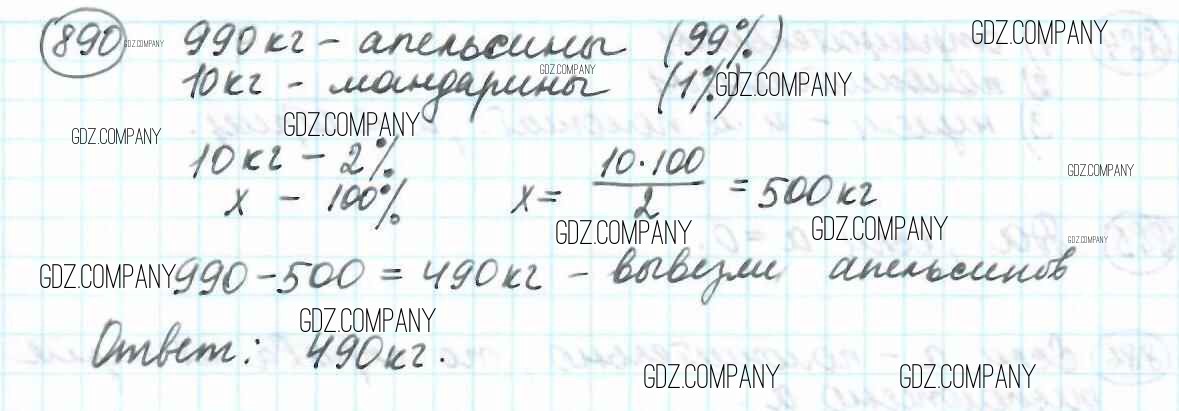 890 990 кг – апельсины (99%)
10 кг – мандарины (1%)
10 кг – 2%
x – 100% x = 10·100 / 2 = 500 кг
990 – 500 = 490 кг – вывезли апельсинов
Ответ: 490 кг.
GDZ.COMPANY
GDZ.COMPANY
GDZ.COMPANY
GDZ.COMPANY
GDZ.COMPANY
GDZ.COMPANY
GDZ.COMPANY
GDZ.COMPANY
GDZ.COMPANY
GDZ.COMPANY
GDZ.COMPANY
GDZ.COMPANY
GDZ.COMPANY
GDZ.COMPANY